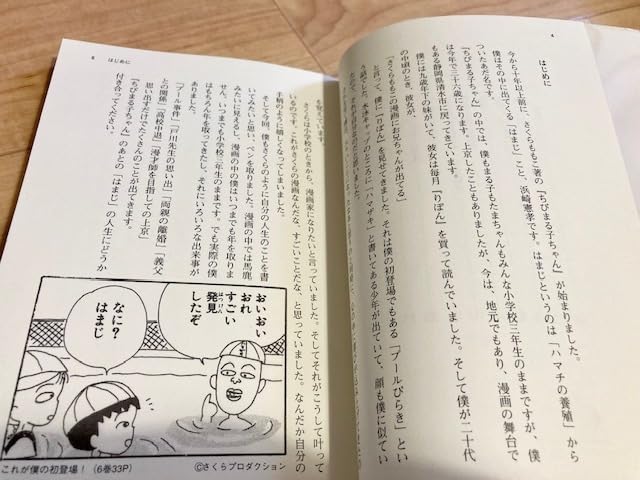 4
はじめに
今から十年以上前に、さくらももこ著の『ちびまる子ちゃん』が始まりました。
僕はその中に出てくる「はまじ」こと、浜崎憲孝です。はまじというのは「ハマチの養殖」から
ついたあだ名です。
『ちびまる子ちゃん』の中では、僕もまる子もたまちゃんもみんな小学校三年生のままですが、僕
は今年で三十六歳になります。上京したこともありましたが、今は、地元でもあり、漫画の舞台で
もある静岡県清水市に戻ってきています。
僕には九歳年下の妹がいて、彼女は毎月『りぼん』を買って読んでいました。そして僕が二十代
の中頃のとき、彼女が、
「さくらももこの漫画にお兄ちゃんが出てる」
と言って、僕に『りぼん』を見せてきました。それは僕の初登場でもある「プールびらき」とい
う話でした。水泳キャップのところに「ハマザキ」と書いてある少年が出ていて、顔も僕に似てい
5
はじめに
を覚えています。
さくらは小学校のときから、漫画家になりたいと言っていました。そしてそれがこうして叶って
いるのです。これがさくらの漫画なんだな、すごいことだな、と思っていました。なんだか自分の
手柄のように嬉しくなってしまいました。
そして今回、僕もさくらのように自分の人生のことを書
いてみたいと思い、ペンを取りました。漫画の中では馬鹿
みたいに見えるし、漫画の中の僕はいつまでも年を取りま
せん。いつまでも小学校三年生のままです。でも実際の僕
はもちろん年を取ってきたし、それにいろいろな出来事が
「プール事件」「戸川先生の思い出」「両親の離婚」「義父
との関係」「高校中退」「漫才師を目指しての上京」
思い出すだけでたくさんのことが出てきます。
『ちびまる子ちゃん』のあとの「はまじ」の人生にどうか
付き合ってください。
おいおい
おれ
すごい
発見
はっけん
したぞ
なに?
はまじ
これが僕の初登場!(6巻33P)
©さくらプロダクション